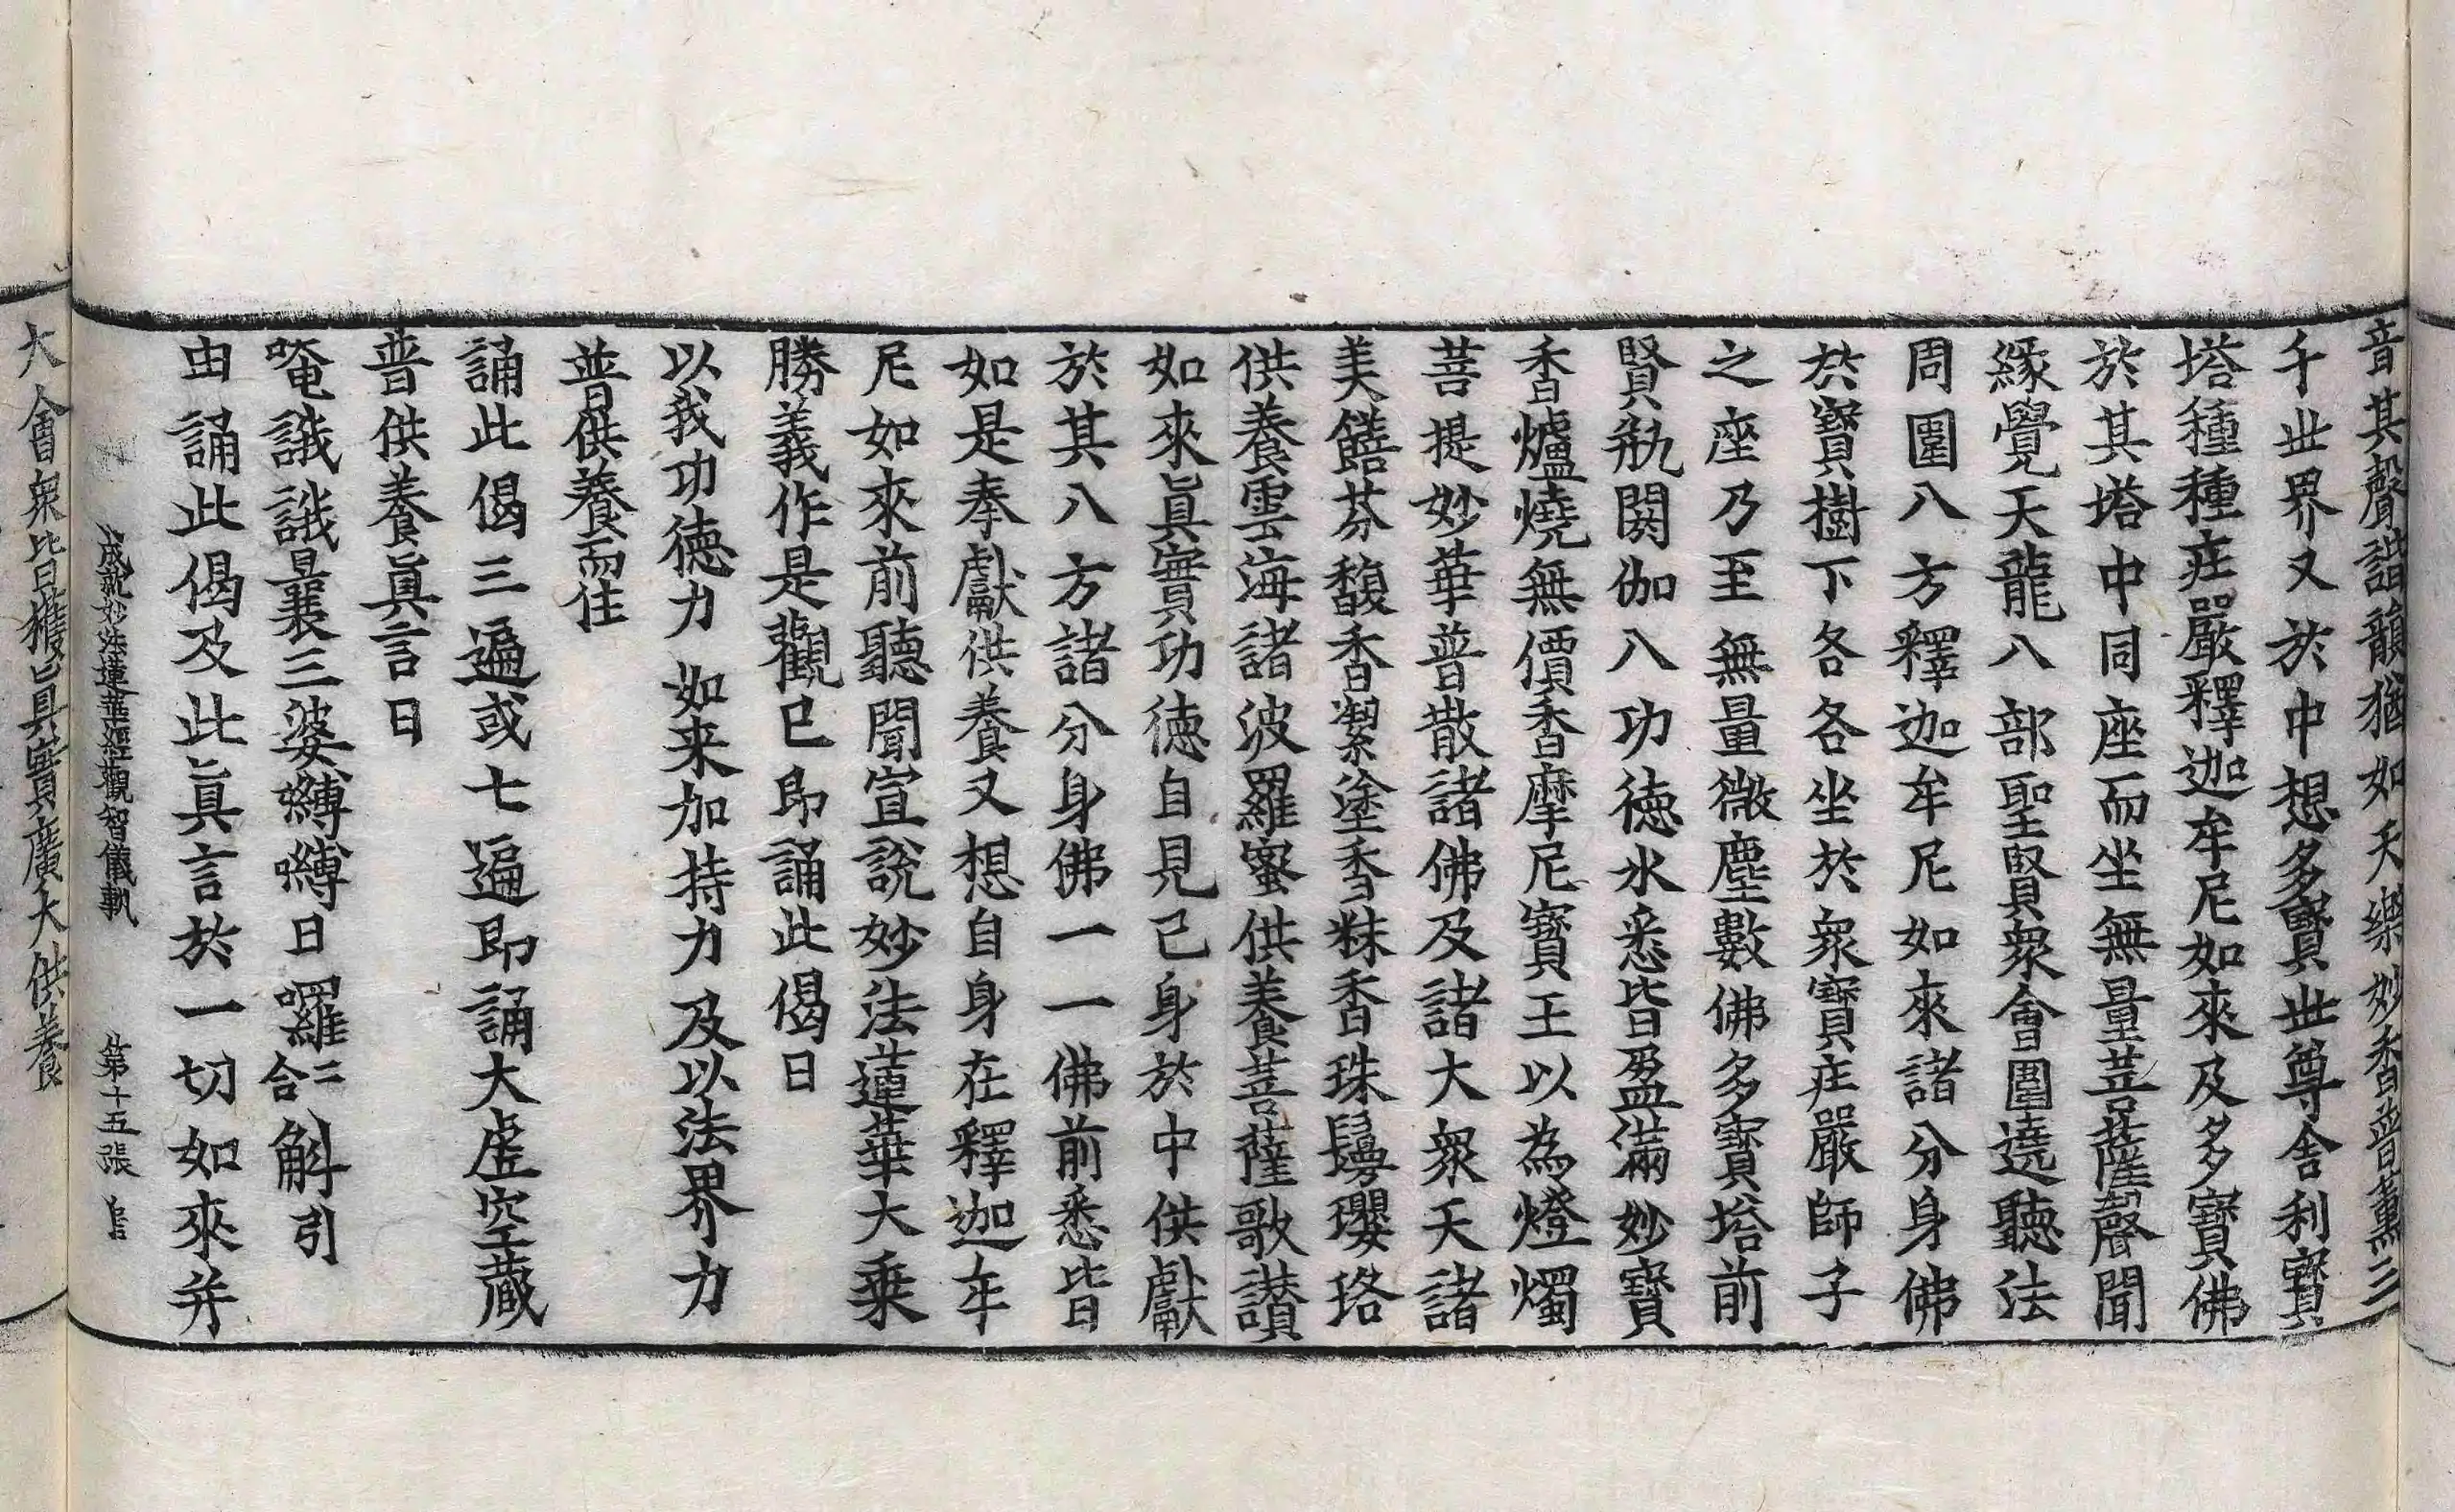 音其聲諧韻猶如天樂妙香普薫三
千世界又於中想多寶世尊舍利寶
塔種種莊嚴釋迦牟尼如來及多寶佛
於其塔中同座而坐無量菩薩聲聞
緣覺天龍八部聖賢衆會圍遶聽法
周圍八方釋迦牟尼如來諸分身佛
於寶樹下各各坐於衆寶莊嚴師子
之座乃至無量微塵數佛多寶塔前
賢瓶閼伽八功德水悉皆盈滿妙寶
香爐燒無價香摩尼寶王以為燈燭
菩提妙華普散諸佛及諸大衆天諸
美饍芬馥香潔塗香粖香珠鬘瓔珞
供養雲海諸波羅蜜供養菩薩歌讃
如來眞實功德自見己身於中供獻
於其八方諸分身佛一一佛前悉皆
如是奉獻供養又想自身在釋迦牟
尼如來前聽聞宣說妙法蓮華大乗
勝義作是觀已即誦此偈曰
以我功德力 如来加持力及以法界力
普供養而住
誦此偈三遍或七遍即誦大虗空蔵
普供養眞言曰
唵誐誐曩三婆嚩嚩日囉二合斛引
由誦此偈及此眞言於一切如來并
成就妙法蓮華經觀智儀軌 第十五張
大會衆皆獲眞實廣大供養